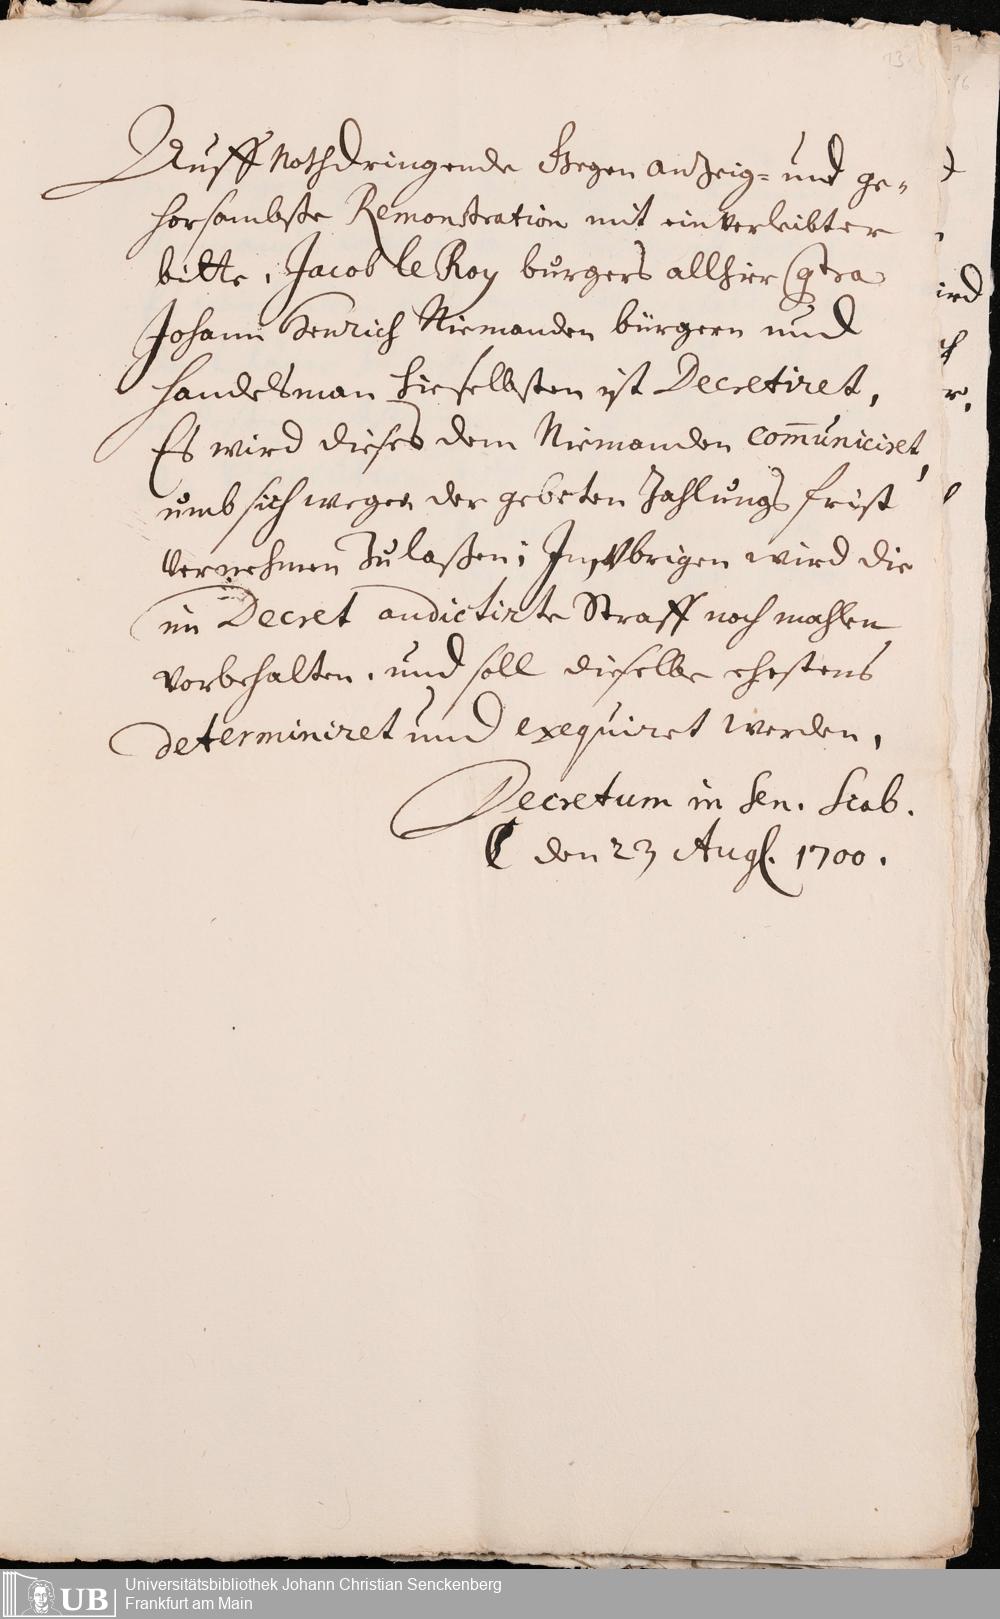 Auff Nothdringende Gegen anzeig= und ge=
horsambste Remonstration mit einverleibter
bitte, Jacob le Roy burgers allhier Contra
Johann Henrich Niemanden bürgern und
Handelsman hieselbsten ist Decretiret,
Es wird dieses dem Niemanden com̄uniciret,
umb sich wegen der gebeten Zahlungs frist
vernehmen zu laßen; Im Ubrigen wird die
im Decret andictirte Straff noch mahlen
vorbehalten, und soll dieselbe ehestens
determiniret und exequiret werden,
Decretum in Sen. Scab.
den 23 Aug. 1700.
Universitätsbibliothek Johann Christian Senckenberg
Frankfurt am Main
UB